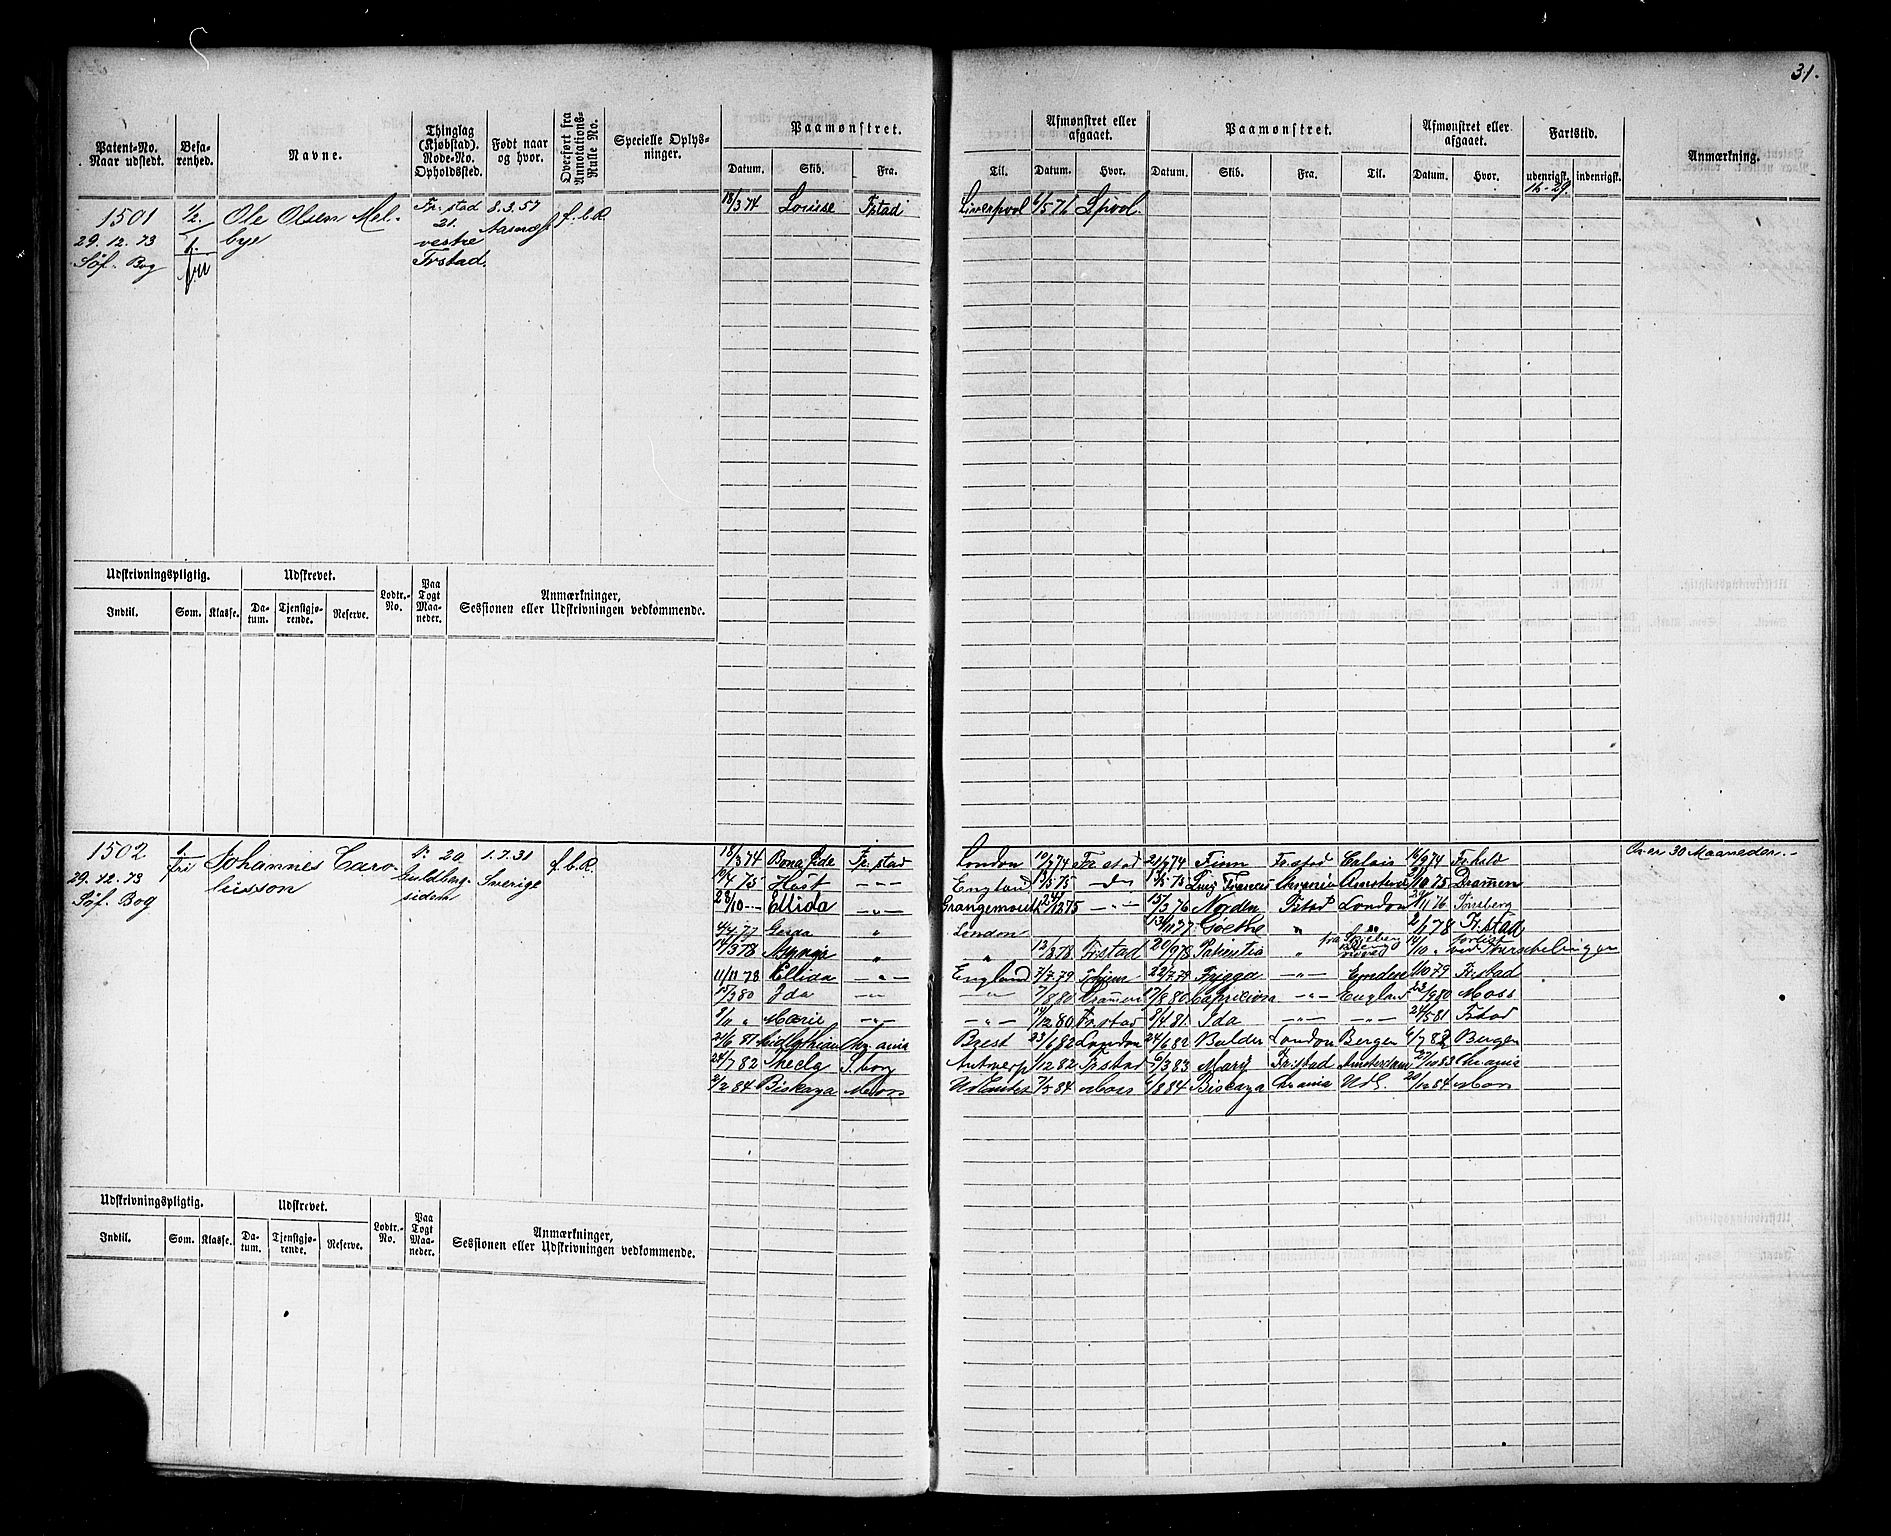 31.
Patent-No. Naar udstedt. | Befarenhed. | Navne. | Thinglag (Kjøbstad). Rode-No. Opholdssted. | Født naar og hvor. | Overført fra Annotations-Rulle No. | Specielle Oplysninger. | Paamønstret. | Afmønstret eller afgaaet. | Paamønstret. | Afmønstret eller afgaaet. | Fartstid. | Anmærkning.
Datum. | Skib. | Fra. | Til. | Datum. | Hvor. | Datum. | Skib. | Fra. | Til. | Datum. | Hvor. | udenrigsk. | indenrigsk.
16-29
1501 | 1/2 | Ole Olsen Mel- | Fr.stad | 8.3.57 | f.b.R. | 18/3 74 | Louise | Fstad | Liverpool | 6/5 76 | Lpool.
21.
29.12.73 | 1. | bye | vestre
Søf. Bog | fri | Frstad.
Udskrivningspligtig. | Udskrevet. | Lodtr.-No. | Paa Togt Maaneder. | Anmærkninger, Sessionen eller Udskrivningen vedkommende.
Indtil. | Som. | Klasse. | Datum. | Tjenstgjørende. | Reserve.
1502 | 1. | Johannes Caro- | V: 20 | 1.7.31 | f.b.R. | 18/3 74 | Bona fide | Fr.stad | London | 10/7 74 | Fr.stad | 21/7 74 | Finn | Fr.stad | Calais | 16/9 74 | Fr.hald | Over 30 Maaneder.-
fri
29.12.73 | liusson | Guldberg- | Sverige | 10/4 75 | Høst | -"- | England | 13/5 75 | -do- | Amsterd | 10 75 | Drammen
Søf. Bog | sidem | 28/10 - | Ellida | -"- | Grangemouth | 12 75 | -"- | 15/3 76 | Norden | Fstad | London | 11 76 | Tønsberg
Gerda | " | London | 77 | Goethe | " | 2/1 78 | Fr.stad
14/3 78 | " | " | 12/8 78 | Fr.stad | 20/9 78 | Patientia | fra | 14/10 " | forlist ved Terschelingen
11/11 78 | Ellida | -"- | England | 7/7 79 | 22/7 79 | Frigga | -"- | Emden | 10 79 | Fr.stad
15/3 80 | Ida | -"- | -"- | 7/8 80 | Dramen | 17/8 80 | -"- | England | 23/9 80 | Moss
9/11 " | Marie | -"- | -"- | 14/12 80 | Fr.stad | 8/4 81. | Ida | -"- | -"- | 24/5 81 | Frstad
21/6 81 | Midlothian | Chr.ania | Brest | 23/6 82 | London | 24/6 82 | Balder | London | Bergen | 6/7 82 | Bergen
24/7 82 | Thecla | S.borg | Antwerp | 1/12 82 | Fr.stad | 6/3 83 | Mary | Fr.stad | Amsterdam | 27/10 83 | Chrania
2/2 84 | Biskaya | Moss | Udlandet | 7/5 84 | Moss | 6/8 84 | Biskaya | Crania | Udl. | 20/12 84 | Moss
Udskrivningspligtig. | Udskrevet. | Lodtr.-No. | Paa Togt Maaneder. | Anmærkninger, Sessionen eller Udskrivningen vedkommende.
Indtil. | Som. | Klasse. | Datum. | Tjenstgjørende. | Reserve.